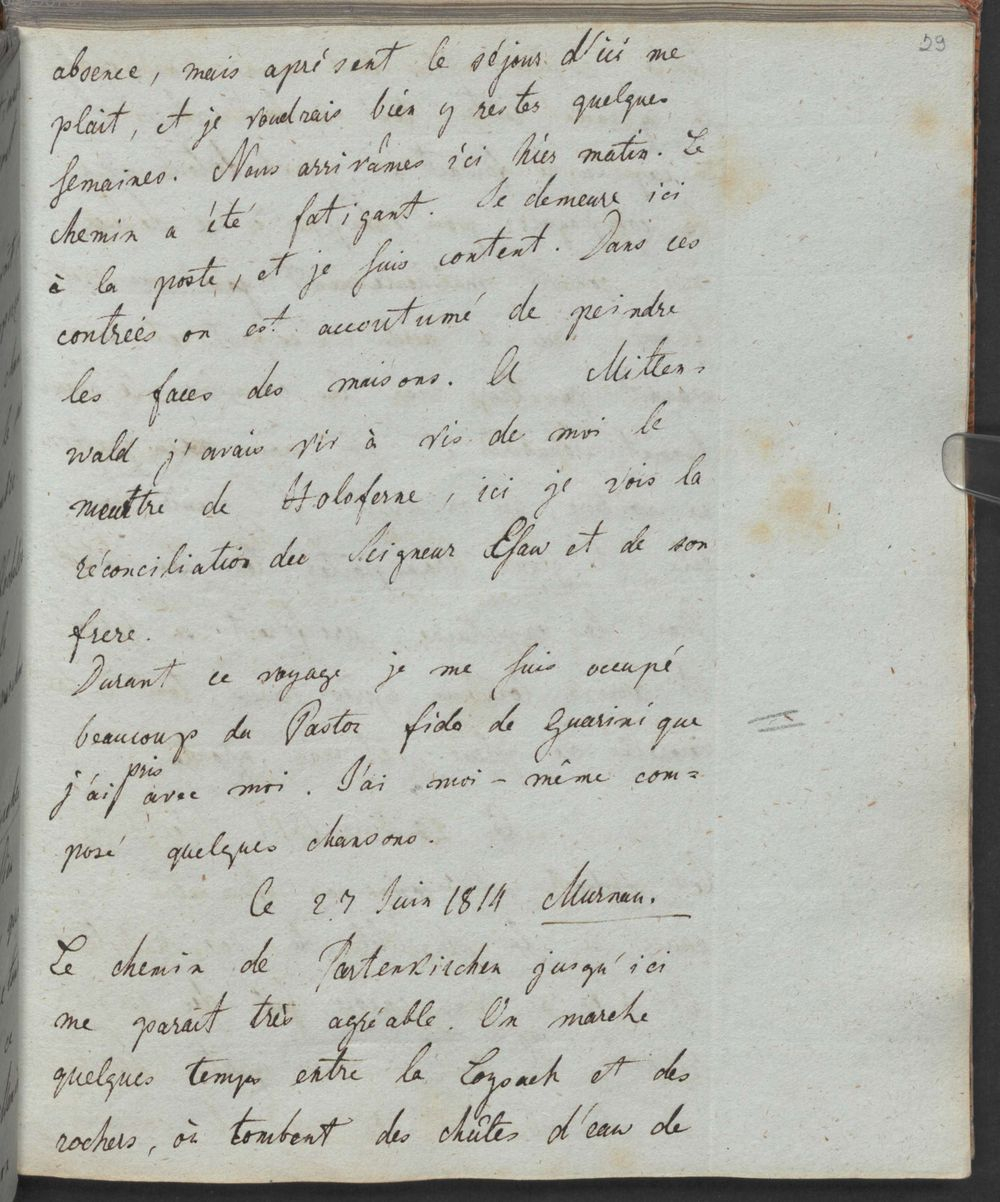 29
absence, mais aprésent le séjour d'ici me
plait, et je voudrais bien y rester quelques
semaines. Nous arrivâmes ici hier matin. Le
chemin a été fatigant. Je demeure ici
à la poste, et je suis content. Dans ces
contreés on est accoutumé de peindre
les faces des maisons. A Mitten=
wald j'avais vis à vis de moi le
meutre de Holoferne, ici je vois la
réconciliation du Seigneur Esau et de son
frere.
Durant ce voyage je me suis occupé
beaucoup du Pastor fido de Guarini que
j'ai pris avec moi. J'ai moi-même com=
posé quelques chansons.
Ce 27 Juin 1814 Murnau.
Le chemin de Partenkirchen jusqu'ici
me parait très agréable. On marche
quelques temps entre la Loysach et des
rochers, où tombent des chûtes d'eau de